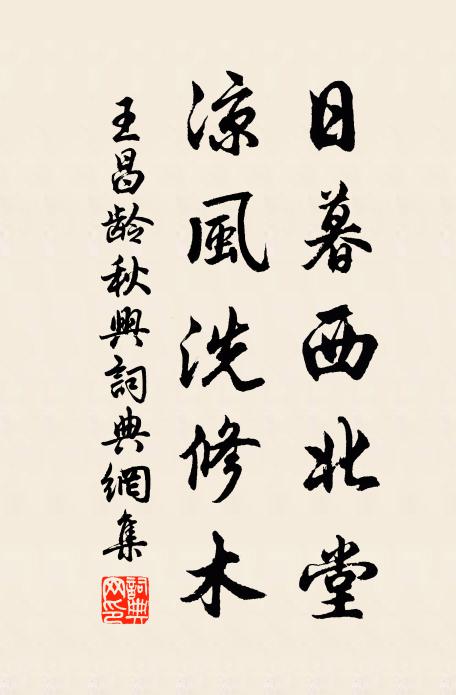 日暮西北堂
涼風洗修木
王昌龄秋興詞典網集
詞典
网印